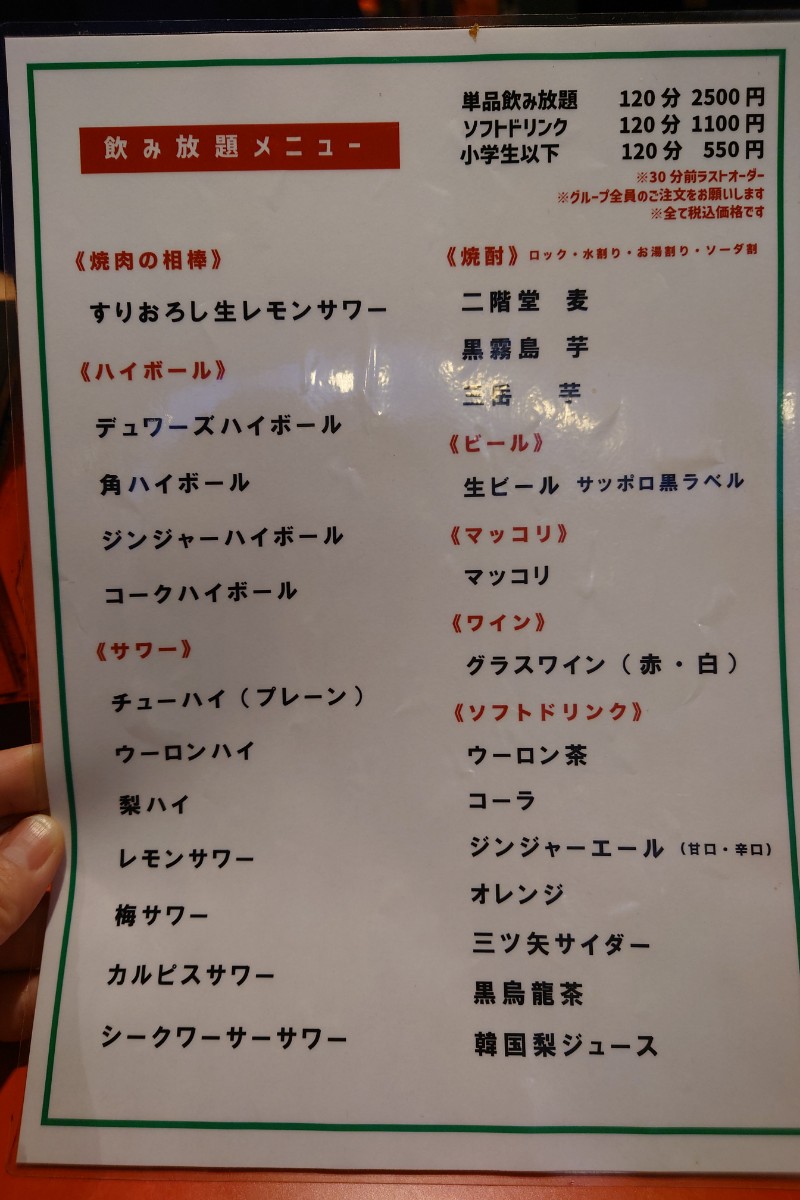 飲み放題メニュー
単品飲み放題 120分 2500円
ソフトドリンク 120分 1100円
小学生以下 120分 550円
※30分前ラストオーダー
※グループ全員のご注文をお願いします
※全て税込価格です
《焼肉の相棒》
すりおろし生レモンサワー
《ハイボール》
デュワーズハイボール
角ハイボール
ジンジャーハイボール
コークハイボール
《サワー》
チューハイ(プレーン)
ウーロンハイ
梨ハイ
レモンサワー
梅サワー
カルピスサワー
シークワーサーサワー
《焼酎》ロック・水割り・お湯割り・ソーダ割
二階堂 麦
黒霧島 芋
三岳 芋
《ビール》
生ビール サッポロ黒ラベル
《マッコリ》
マッコリ
《ワイン》
グラスワイン(赤・白)
《ソフトドリンク》
ウーロン茶
コーラ
ジンジャーエール (甘口・辛口)
オレンジ
三ツ矢サイダー
黒烏龍茶
韓国梨ジュース